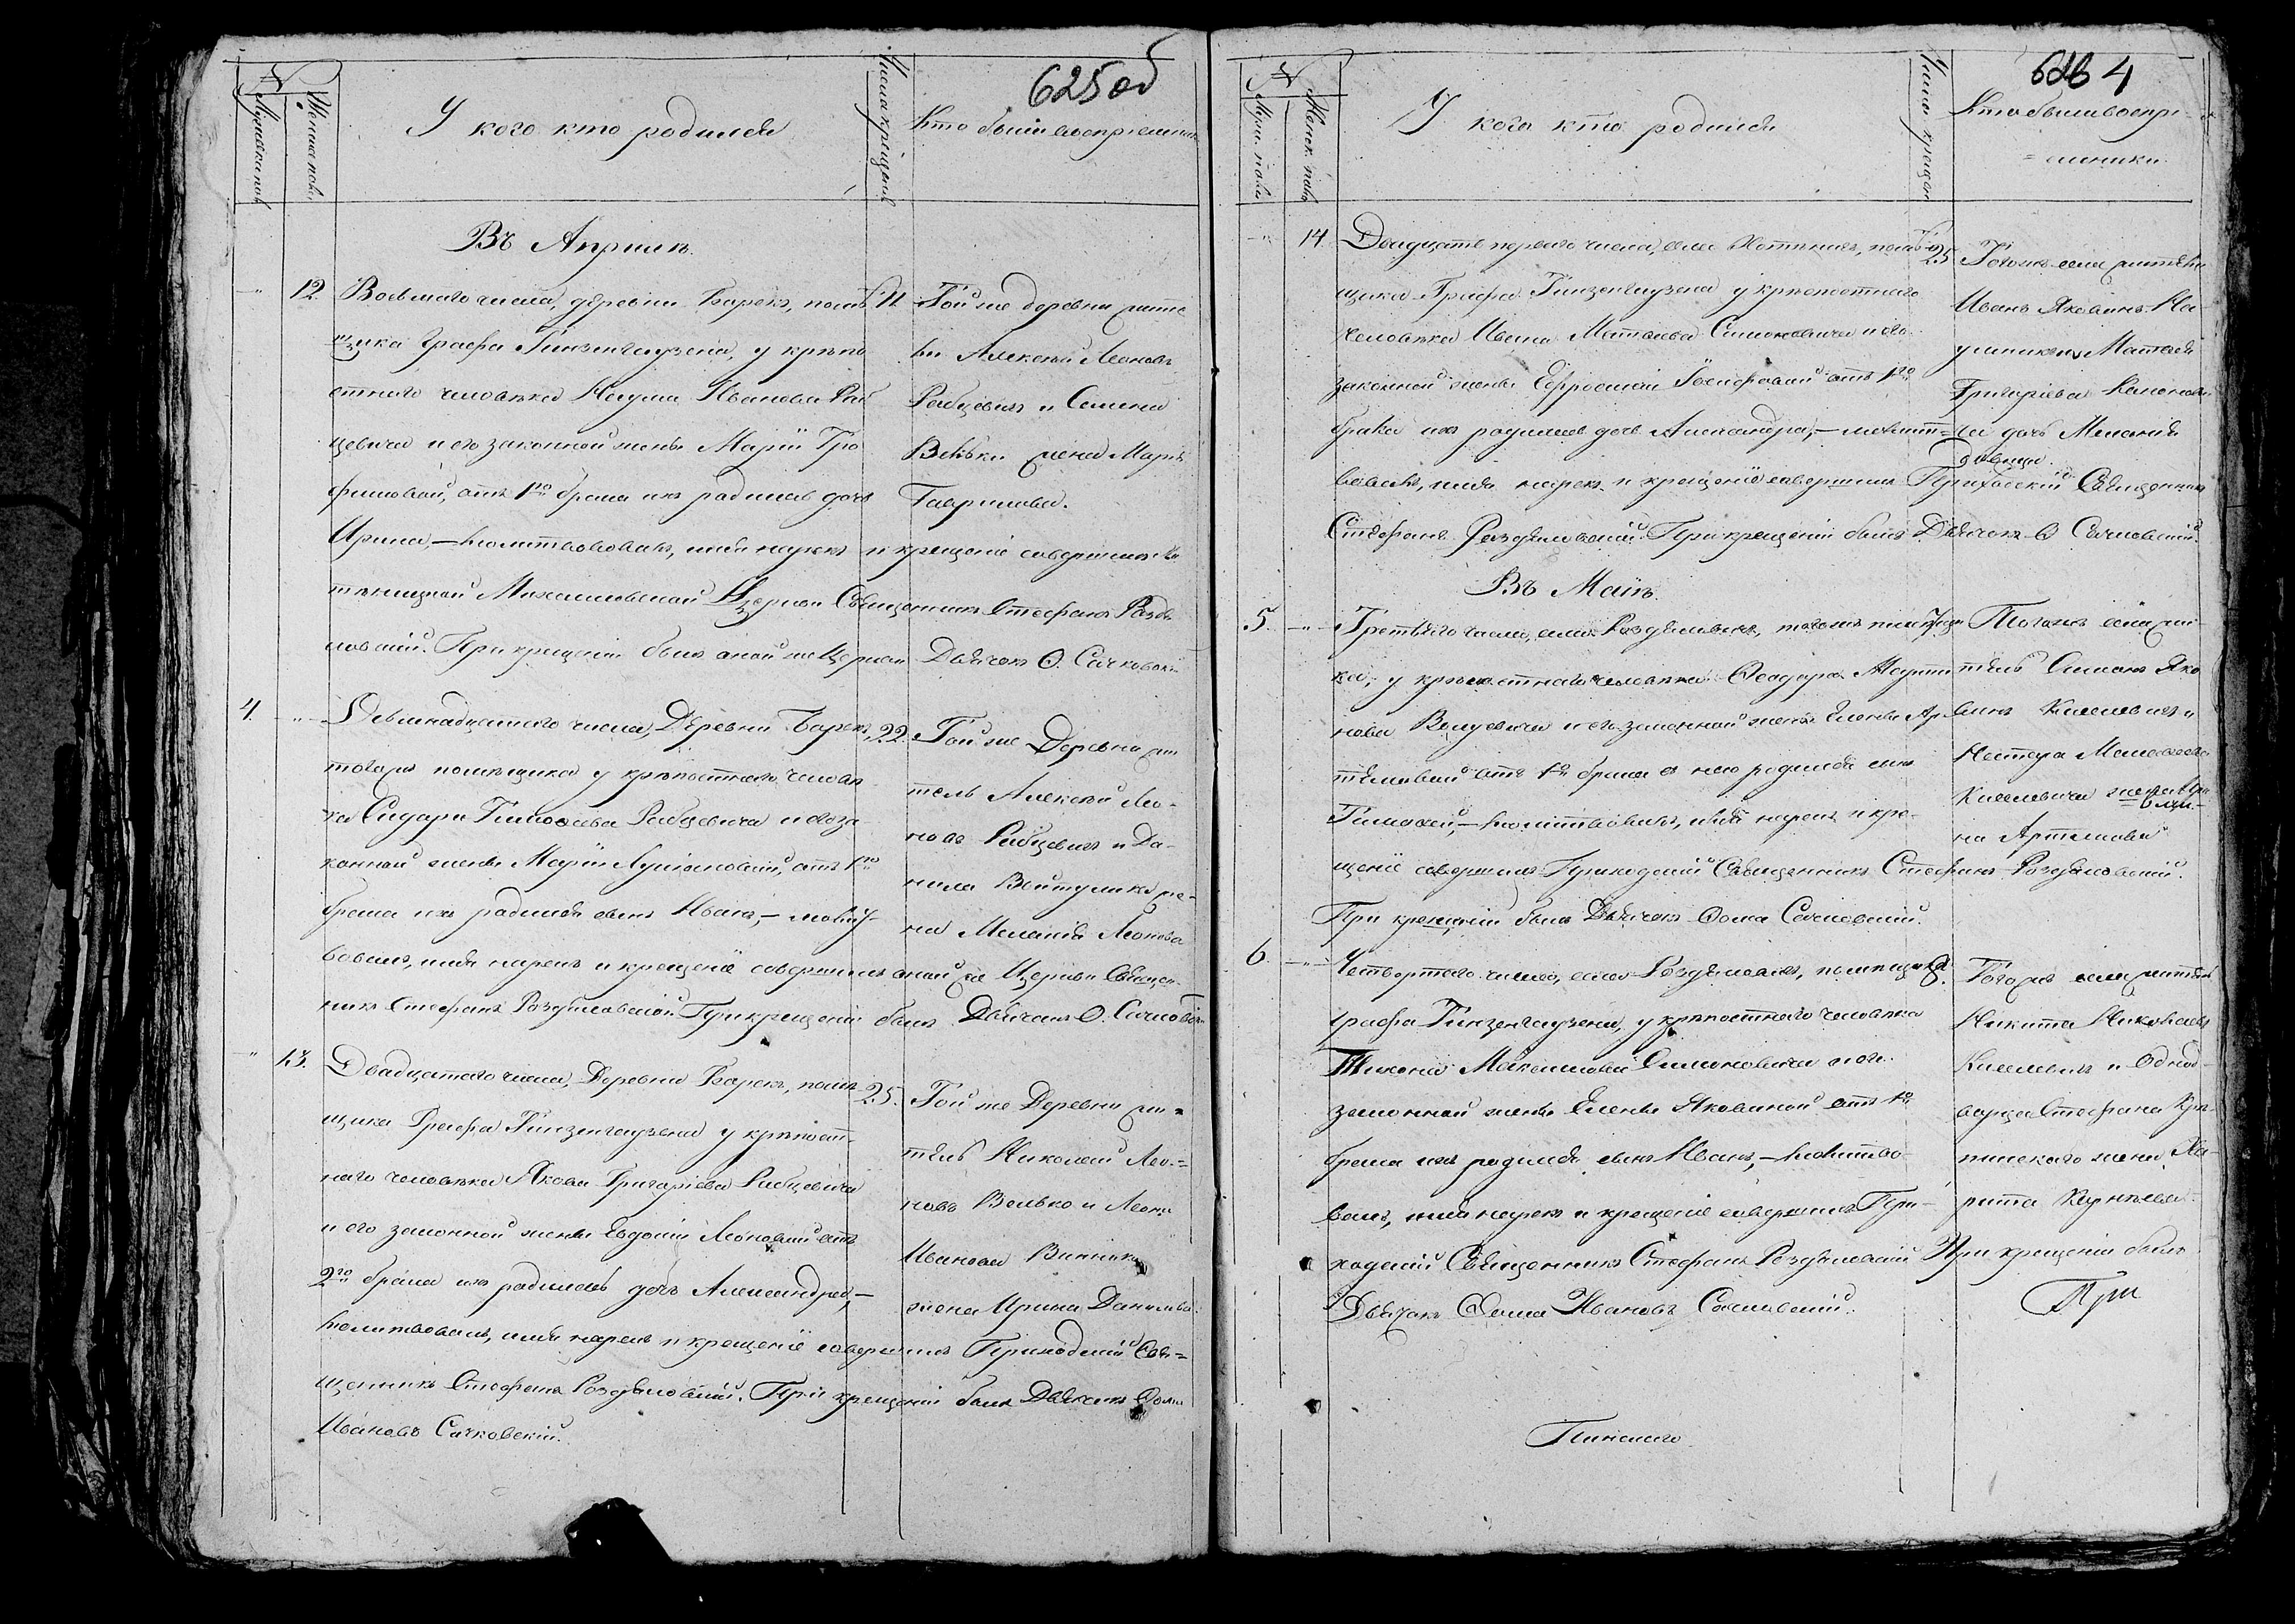 625 об
№
Мужеска пола
Женска пола
У кого кто родился
Числа крещенія
Кто были восприемники
Въ Априлѣ.
12 Восьмаго числа, деревни Барокъ, помѣ 11
щика Графа Гинзенгаузена, у крѣпо
стнаго человѣка Наума Иванова Раб
цевича и его законной жены Маріи Тро
фимовой, отъ 1го брака ихъ родилась дочь
Ирина, – молитвовалъ, имя нарекъ и крещеніе совершилъ Хо
тѣницкой Михайловской Церкви Священникъ Стефанъ Роздя
ловскій. При крещеніи былъ оной же Церкви Дьячокъ Ѳ. Сачковскій
Той же деревни жите
ли Алексѣй Леоновъ
Рабцевичъ и Семена
Велько жена Марѳа
Гаврилова.
4. Девятнадцатаго числа, Деревни Барокъ, 22.
тогожъ помѣщика у крѣпостнаго человѣ
ка Сидора Тимоѳеева Рабцевича и его за
конной жены Маріи Лукіяновой, отъ 1го
брака ихъ родился сынъ Иванъ, – молит
вовалъ, имя нарекъ и крещеніе совершилъ оной же Церкви Священ
никъ Стефанъ Роздяловскій. При крещеніи былъ Дьячокъ Ѳ. Сачков
Той же Деревни жи
тель Алексѣй Лео-
новъ Рабцевичъ и Да-
нила же-
на Меланія Леонова
13. Двадцатаго числа, Деревни Барокъ, помѣ 25.
щика Графа Гинзенгаузена у крѣпост-
наго человѣка Якова Григоріева Рабцевича
и его законной жены Евдокіи Леоновой отъ
2го брака ихъ родилась дочь Александра, –
молитвовалъ, имя нарекъ и крещеніе совершилъ Приходскій Свя=
щенникъ Стефанъ Роздяловскій. При крещеніи былъ Дьячокъ Ѳома
Ивановъ Сачковскій.
Той же Деревни жи=
тель Николай Лео=
новъ Велько и Леона
Иванова
жена Ирина Данилова.
626 4
№
Муж. пола
Женск. пола
У кого кто родился
Число крещенія
Кто были воспрі-
=емники
14 Двадцать перваго числа, села Хотѣничъ, помѣ- 25
щика Графа Гинзенгаузена у крѣпостнаго
человѣка Ивана Матвѣева Симоновича и его
законной жены Ефросиніи Іосифовой отъ 1го
брака ихъ родилась дочь Александра, – молит=
вовалъ, имя нарекъ и крещеніе совершилъ Приходскій Священникъ
Стефанъ Роздяловскій. При крещеніи былъ Дьячокъ Ѳ Сачковскій.
Тогожъ села жители
Иванъ Яковинъ
и Матвѣя
Григоріева
ча дочь Меланія
дѣвица.
Въ Маіѣ.
5. Третьяго числа, села Роздяловичъ, тогожъ помѣщи 7
ка, у крѣпостнаго человѣка Ѳеодора Марти
нова и его законной жены Елены Ар
темьевой отъ 1го брака с нею родился сынъ
Тимоѳей, – молитвовалъ, имя нарекъ и кре-
щеніе совершилъ Приходскій Священникъ Стефанъ Роздяловскій.
При крещеніи былъ Дьячокъ Ѳома Сачковскій.
Тогожъ села жи-
тель Симонъ Яко
влевъ Киселевичъ и
Нестера
Киселевича жена Ири
на Артемова
6. Четвертаго числа, села Роздяловичъ, помѣщика 8.
графа Гинзенгаузена, у крѣпостнаго человѣка
Тихона Максимова Симоновича и его
законной жены Елены Яковиной отъ 1го
брака ихъ родился сынъ Иванъ, – молитво-
валъ, имя нарекъ и крещеніе совершилъ При-
ходскій Священникъ Стефанъ Роздяловскій При крещеніи былъ
Дьячокъ Ѳома Ивановъ Сачковскій.
Тогожъ села житель
Никита Николаевъ
Киселевичъ и Однод-
ворца Стефана
жена Ха-
рита Карнѣева.
При
Пинскаго